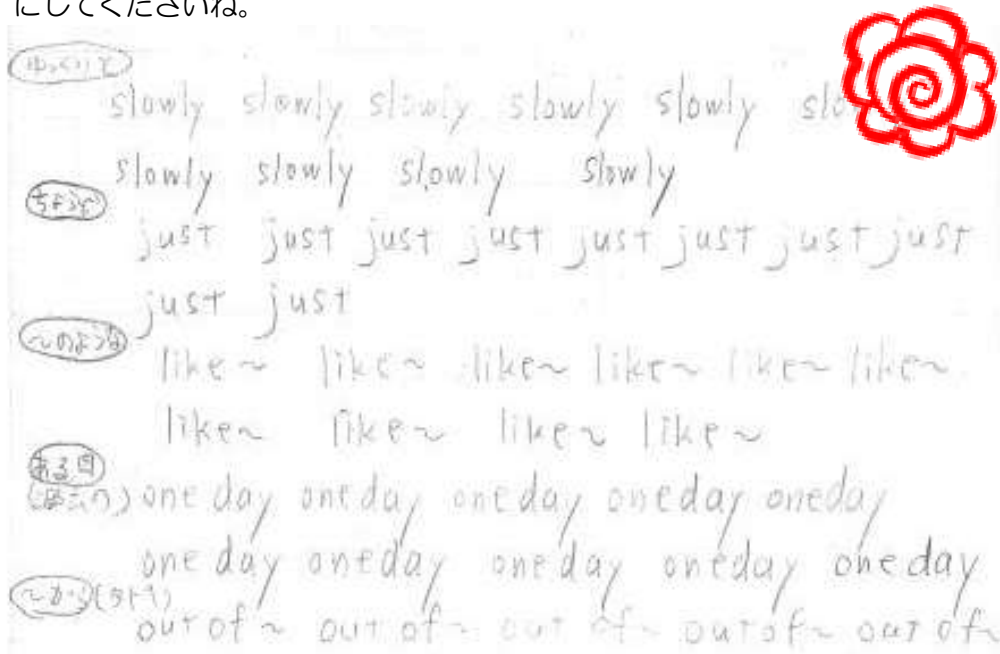 にしてくださいね。
ゆっくりと
slowly slowly slowly slowly slowly slo
slowly slowly slowly slowly
ちょうど
just just just just just just just just
just just
〜のような
like〜 like〜 like〜 like〜 like〜 like〜
like〜 like〜 like〜 like〜
ある日
(過去の) one day one day one day one day one day
one day one day one day one day one day
〜から(外へ)
out of〜 out of〜 out of〜 out of〜 out of〜